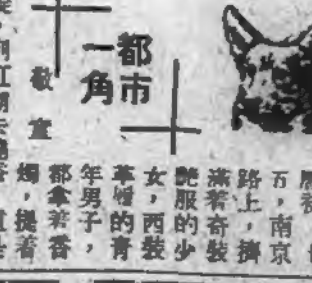 都市
一角
敬
五，南京
路上，擠
滿着奇裝
艷服的少
女，西裝
革履的青
年男子，
都拿着香
燭，提着